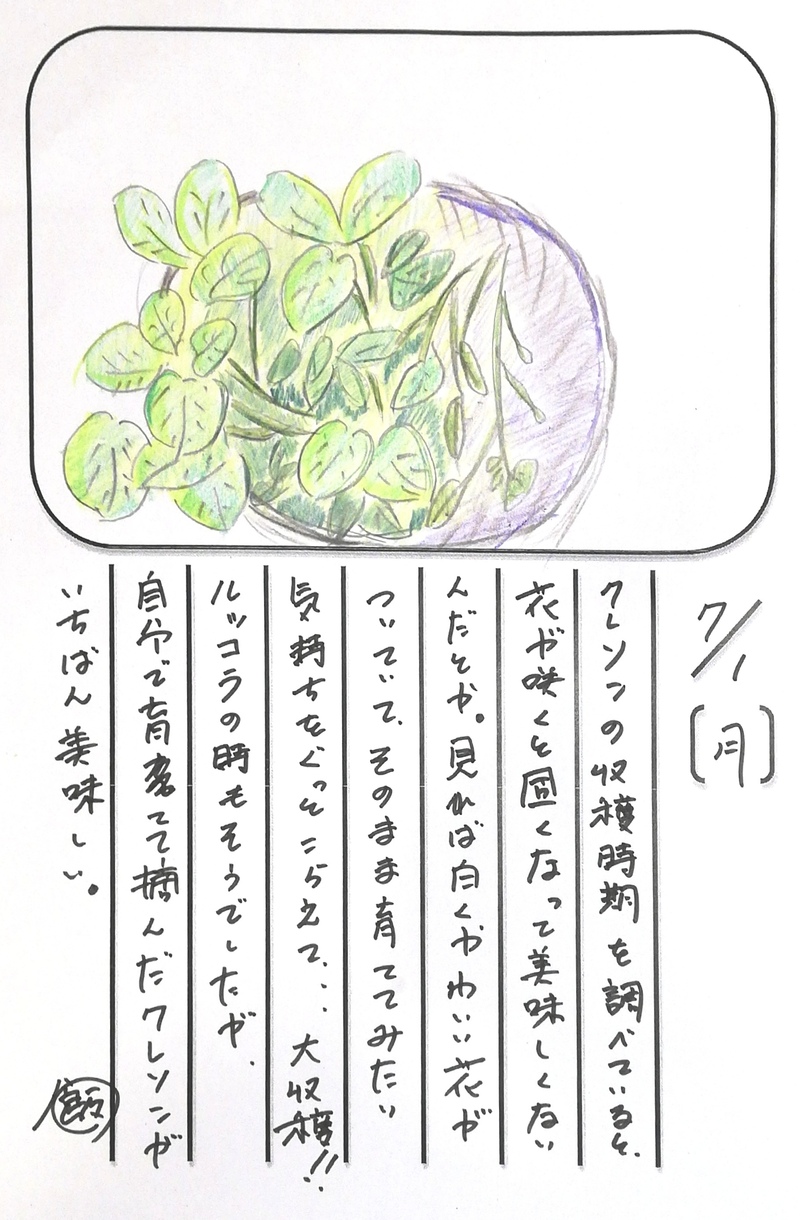 7/1
[月]
クレソンの収穫時期を調べていると、
花が咲くと固くなって美味しくない
んだとか。見れば白くかわいい花が
ついていて、そのまま育ててみたい
気持ちをぐっとこらえて... 大収穫!!
ルッコラの時もそうでしたが、
自分で育てて摘んだクレソンが
いちばん美味しい。